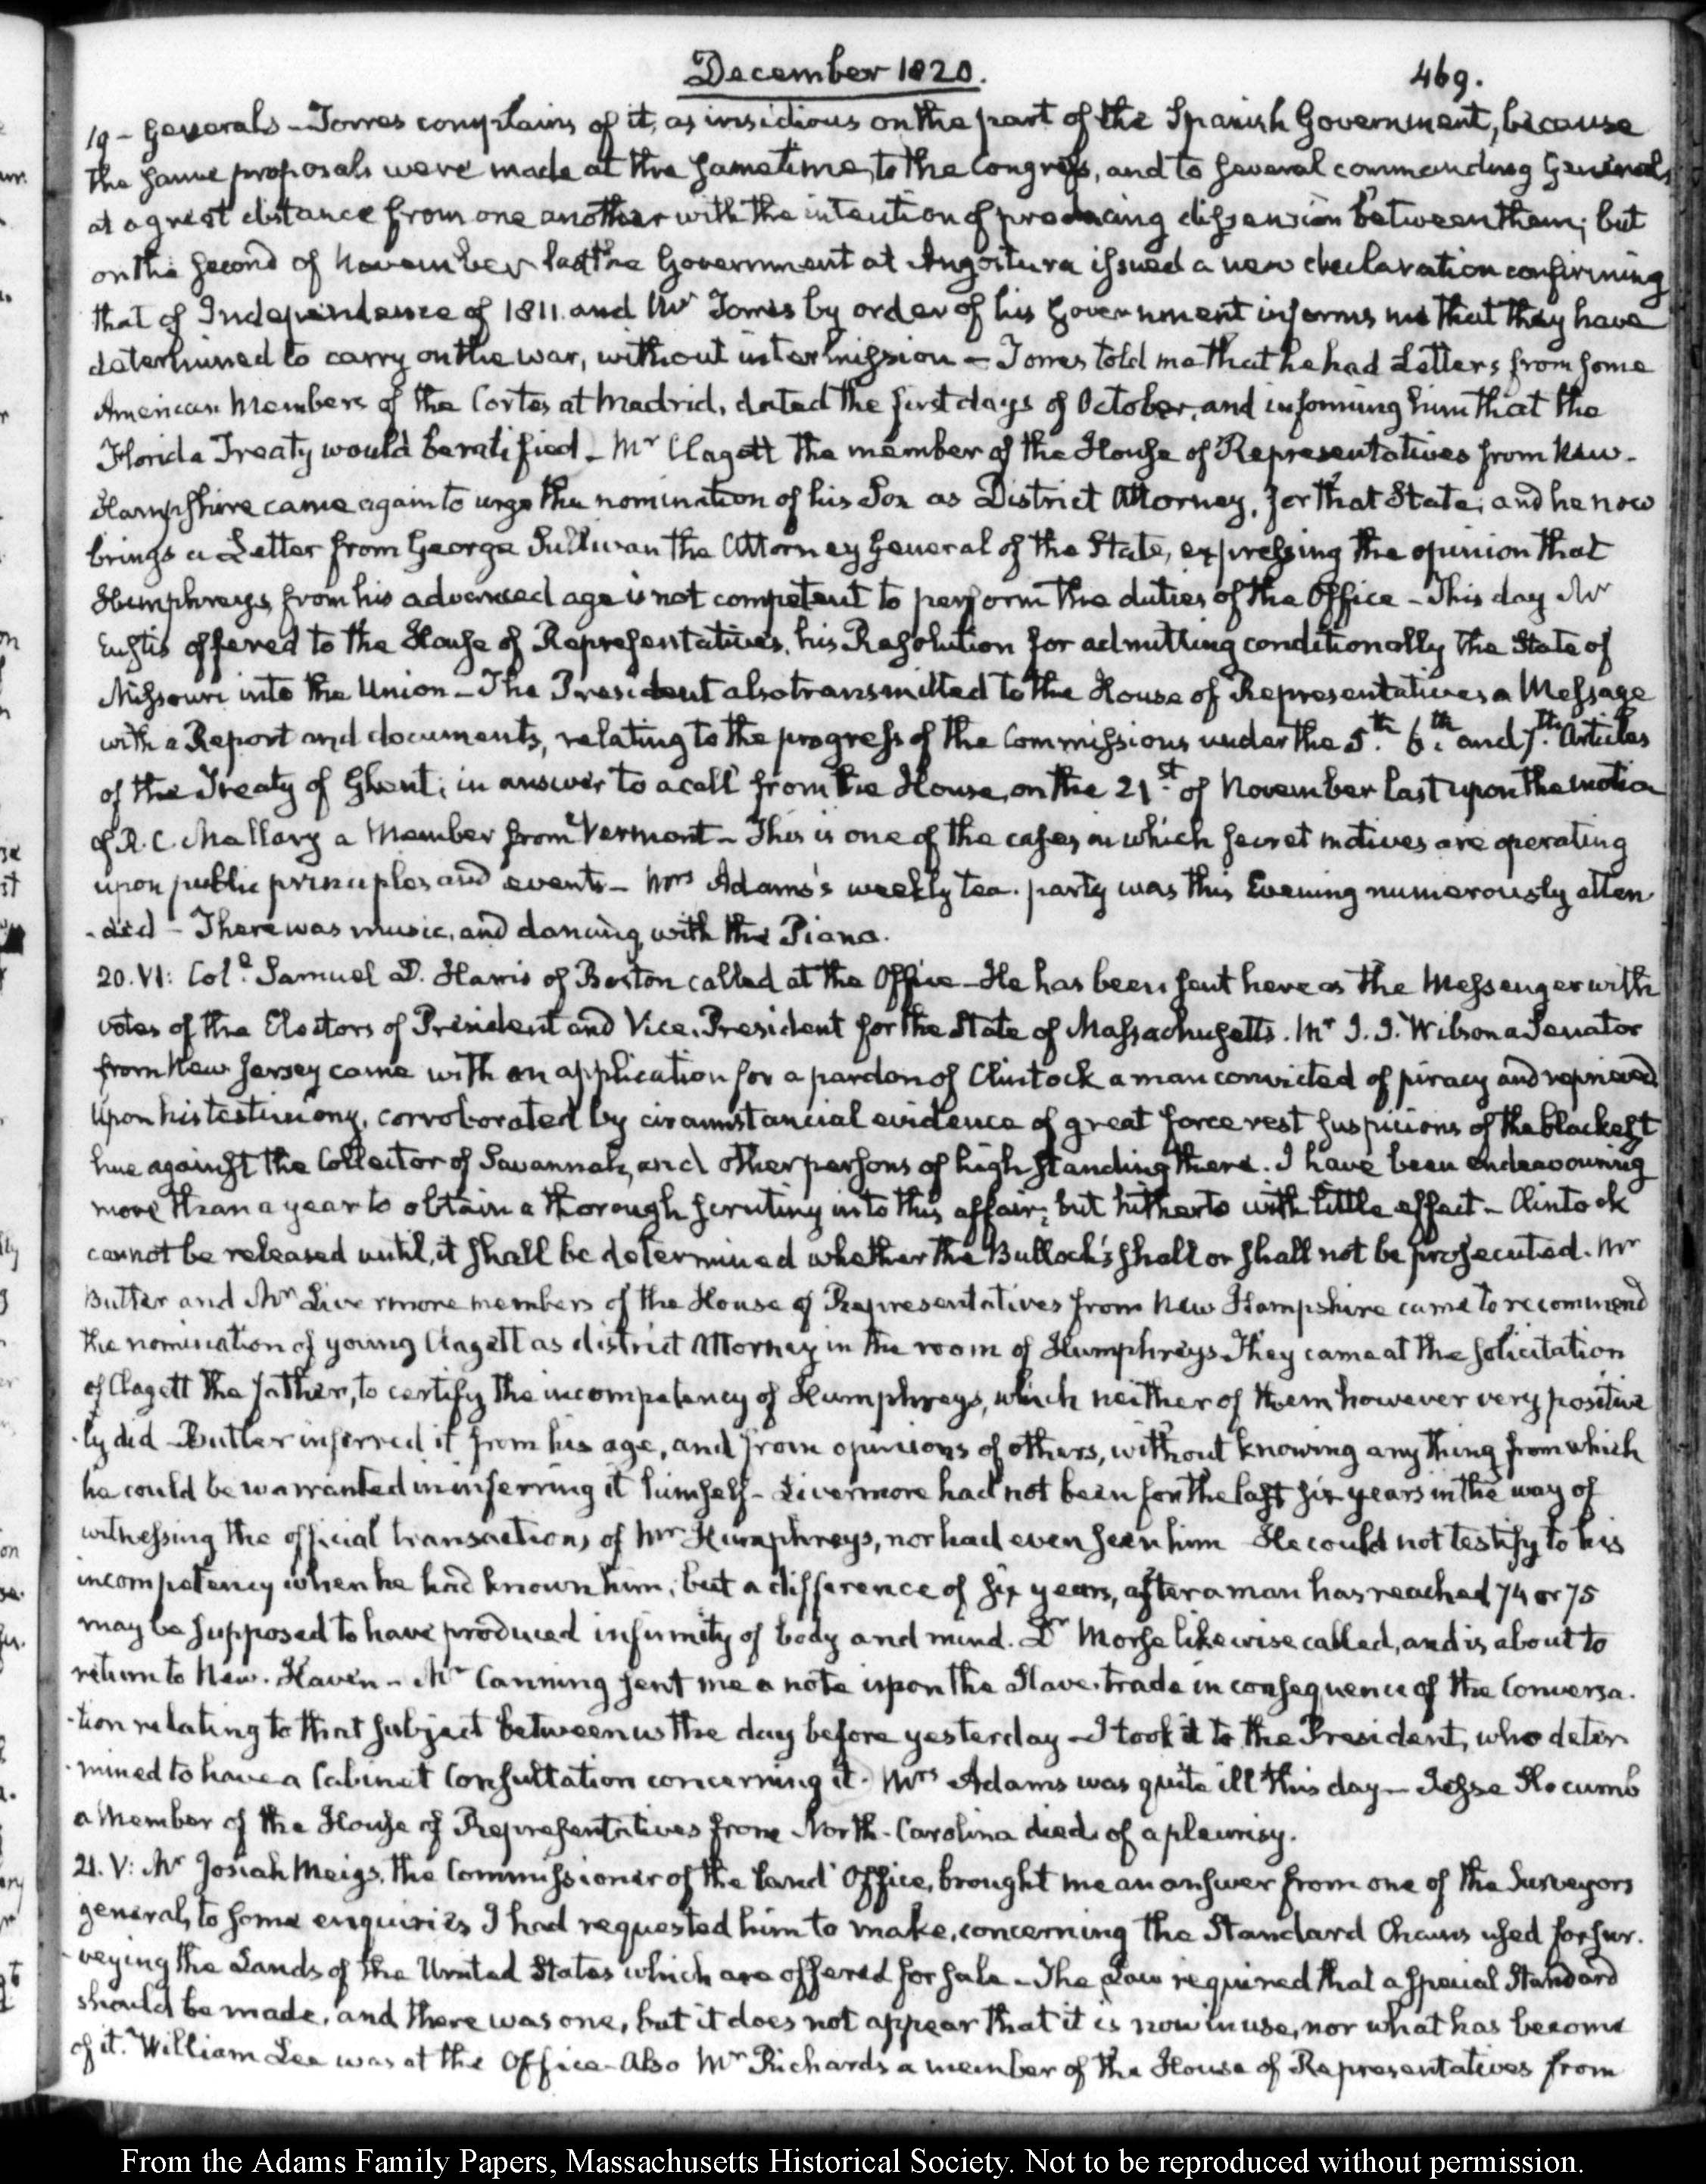 December 1820.
469.
19 – Generals – Torres complains of it, as insidious on the part of the Spanish Government, because
the same proposals were made at the same time, to the Congress, and to several commanding Generals,
at a great distance from one another with the intention of producing dissension between them; but
on the second of November last the Government at Angostura issued a new declaration confirming
that of Independence of 1811. and Mr Torres by order of his Government informs me that they have
determined to carry on the war, without intermission – Torres told me that he had Letters from some
American Members of the Cortes at Madrid, dated the first days of October, and informing him that the
Florida Treaty would be ratified – Mr Clagett the member of the House of Representatives from New-
Hampshire came again to urge the nomination of his Son as District Attorney, for that State; and he now
brings a Letter from George Sullivan the Attorney General of the State, expressing the opinion that
Humphreys, from his advanced age is not competent to perform the duties of the Office – This day Mr
Eustis offered to the House of Representatives, his Resolution for admitting conditionally the State of
Missouri into the Union – The President also transmitted to the House of Representatives a Message
with a Report and documents, relating to the progress of the Commissions under the 5th. 6th. and 7th. Articles
of the Treaty of Ghent; in answer to a call from the House, on the 21st. of November last upon the motion
of R. C. Mallary a Member from Vermont – This is one of the cases in which secret motives are operating
upon public principles and events – Mrs Adams's weekly tea-party was this Evening numerously atten-
-ded – There was music, and dancing, with the Piano.
20. VI: Coll. Samuel D. Harris of Boston called at the Office – He has been sent here as the Messenger with
votes of the Electors of President and Vice-President for the State of Massachusetts. Mr J. J. Wilson a Senator
from New Jersey came with an application for a pardon of Clintock a man convicted of piracy and reprieved
Upon his testimony, corroborated by circumstancial evidence of great force rest suspicions of the blackest
hue against the Collector of Savannah, and other persons of high standing there. I have been endeavouring
more than a year to obtain a thorough scrutiny into this affair; but hitherto with little effect – Clintock
cannot be released until, it shall be determined whether the Bullock's shall or shall not be prosecuted. Mr
Butler and Mr Livermore members of the House of Representatives from New Hampshire came to recommend
the nomination of young Clagett as district Attorney in the room of Humphreys. They came at the solicitation
of Clagett the father, to certify the incompetency of Humphreys, which neither of them however very positive
-ly did – Butler inferred it from his age, and from opinions of others, without knowing any thing from which
he could be warranted in inferring it himself – Livermore had not been for the last six years in the way of
witnessing the official transactions of Mr Humphreys, nor had even seen him He could not testify to his
incompetency when he had known him; but a difference of six years, after a man has reached 74 or 75
may be supposed to have produced infirmity of body and mind. Dr Morse likewise called, and is about to
return to New-Haven – Mr Canning sent me a note upon the Slave-trade in consequence of the Conversa-
-tion relating to that subject between us the day before yesterday – I took it to the President, who deter-
-mined to have a Cabinet Consultation concerning it. Mrs Adams was quite ill this day – Jesse Slocumb
a Member of the House of Representatives from North-Carolina died of a pleurisy.
21. V: Mr Josiah Meigs, the Commissioner of the Land Office, brought me an answer from one of the Surveyors
general, to some enquiries I had requested him to make, concerning the Standard Chains used for sur-
-veying the Lands of the United States which are offered for sale – The Law required that a special Standard
should be made, and there was one, but it does not appear that it is now in use, nor what has become
of it. William Lee was at the Office – Also Mr Richards a member of the House of Representatives from
From the Adams Family Papers, Massachusetts Historical Society. Not to be reproduced without permission.